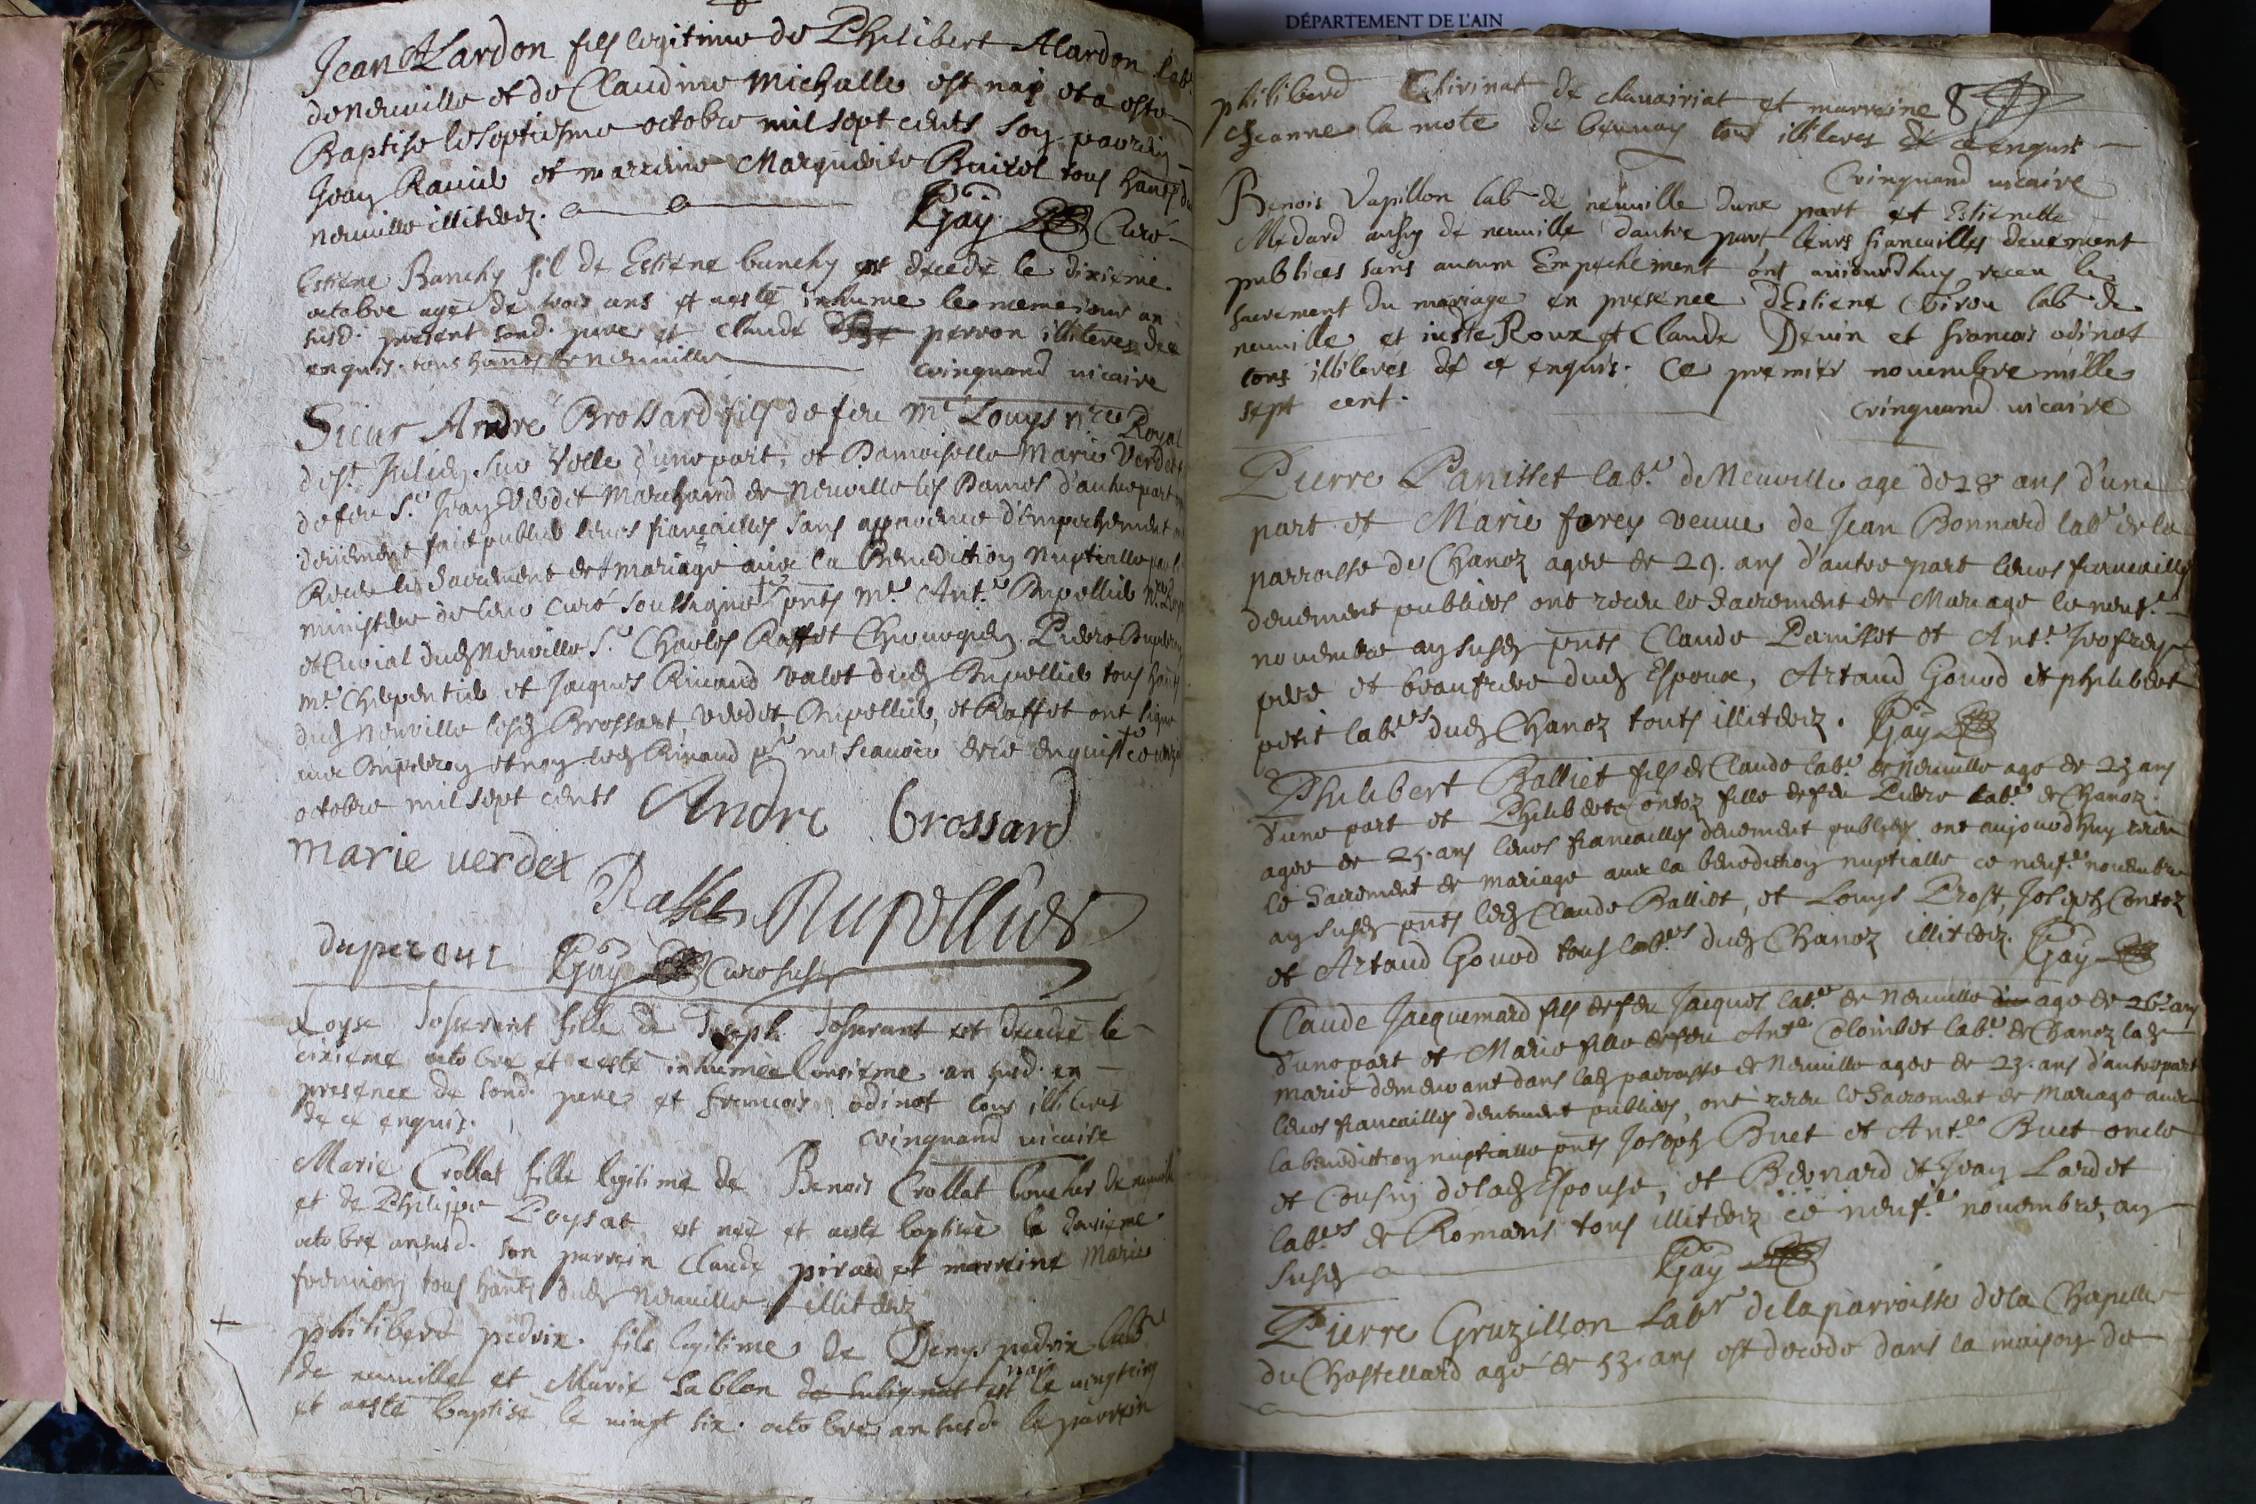 DÉPARTEMENT DE L'AIN
Jean Alardon fils legitime de Philibert Alardon labr
de neuville et de Claudine Michalle est nay et a esté
Baptisé le septiesme octobre mil sept cents son parrin
Jean Ravier et marreine Marguerite Buirel tous hants du
neuville illiterez. Gay Curé
Estiene Banchy fil de Estiene banchy est decedé le dixieme
octobre agé de trois ans et aesté inhume le meme iour an
susd. present sond. pere et Claude perron illiteres de ce
enquis. tous hants de neuville
Cvinquand vicaire
Sieur André Brossard fils de feu Me Louys nre Royal
de st. Julien sur Velle d'une part, et Damoiselle Marie Verdet
de feu Sr Jean Verdet Marchand de Neuville les Dames d'autre part
deuement fait publier leurs fiançailles sans apparence d'empechement
Receu le Sacrement de mariage avec la Benediction Nuptialle par le
ministere de leur Curé soussigné pnts Me Antne Rupellier
et Curial dud Neuville Sr Charles Raffet Chirurgien, Pierre Duperray
me Charpentier et Jacques Rinaud valet dud Rupellier tous hants
dud Neuville lesd Brossart, Verdet Rupellier, et Raffet ont signé
avec Duperray et non led Rinaud pr ne scavoir de ce enquis ce
octobre mil sept cents André Brossard
marie verdet
Raffet Rupellier
duperai Gay Curé susd
Loyse Josserant fille de Joseph Josserant est decedé le
dixieme octobre et a esté inhumée l'onsieme an susd. en
presence de sond. pere et francois odinot tous illiteres
de ce enquis.
Cvinquand vicaire
Marie Crollat fille legitime de Benois Crollat boucher de neuville
et de Philippe Poysat est née et aesté baptisée le dousieme
octobre an susd. son parrein Claude pirad et marreine Marie
formion tous hants dud Neuville illiterez
+ Philiberd pedrix fils legitime de Denys pedrix labr
nay
de neuville et Marie Sablon de Subignat est le vingtcinq
et aesté baptisé le vingt six octobre an susd le parrein
philiberd de chavairiat et marreine 8
Jeanne la mote de bennay tous illiteres de ce enquis
Cvinquand vicaire
Benois Vapillon labr de neuville dune part et Estienette
Medard aussy de neuville dautre part leurs fiancailles deuement
publiees sans aucun Empechement ont auiourdhuy receu le
sacrement du mariage en presence dEstiene Cbirou labr de
neuville et iuste Roux et Claude Devin et francois odinot
tous illiteres de ce enquis. Ce premier novembre mille
sept cent.
Cvinquand vicaire
Pierre Panisset labr de Neuville agé de 28 ans d'une
part et Marie forey veuve de Jean Bonnard labr de la
parroisse de Chanoz agée de 29. ans d'autre part leurs fiancailles
deuement publiees ont receu le Sacrement de Mariage le neufe
novembre an susd pnts Claude Panisset et Antne Jeofrey
pere et beaufrere dud Espoux, Artaud Gouod et philibert
petit labrs dud Chanoz touts illiterez. Gay
Philibert Balliet fils de Claude labr de Neuville agé de 23 ans
d'une part et Philiberte Contoz fille de feu Pierre labr de Chanoz
agée de 25. ans leurs fiancailles deuement publiees ont aujourdhuy receu
le Sacrement de mariage avec la benediction nuptialle ce neufe novembre
an susd pnts led Claude Balliet, et Louys Prost, Joseph Contoz
et Artaud Gouod tous labrs dud Chanoz illiterez. Gay
Claude Jacquemard fils de feu Jacques labr de Neuville agé de 26 ans
d'une part et Marie fille de feu Antne Colombet labr de Chanoz lad
marie demeurant dans lad parroisse de Neuville agée de 23. ans d'autre part
leurs fiancailles deuement publiees, ont receu le Sacrement de Mariage avec
la benediction nuptialle pnts Joseph Buet et Antne Buet oncle
et Cousin de lad Espouse, et Bernard et Jean Lardet
labrs de Romans tous illiterez ce neufe novembre, an
susd Gay
Pierre Gruzillon Labr de la parroisse de la Chapelle
du Chastellard agé de 53. ans est decedé dans la maison de